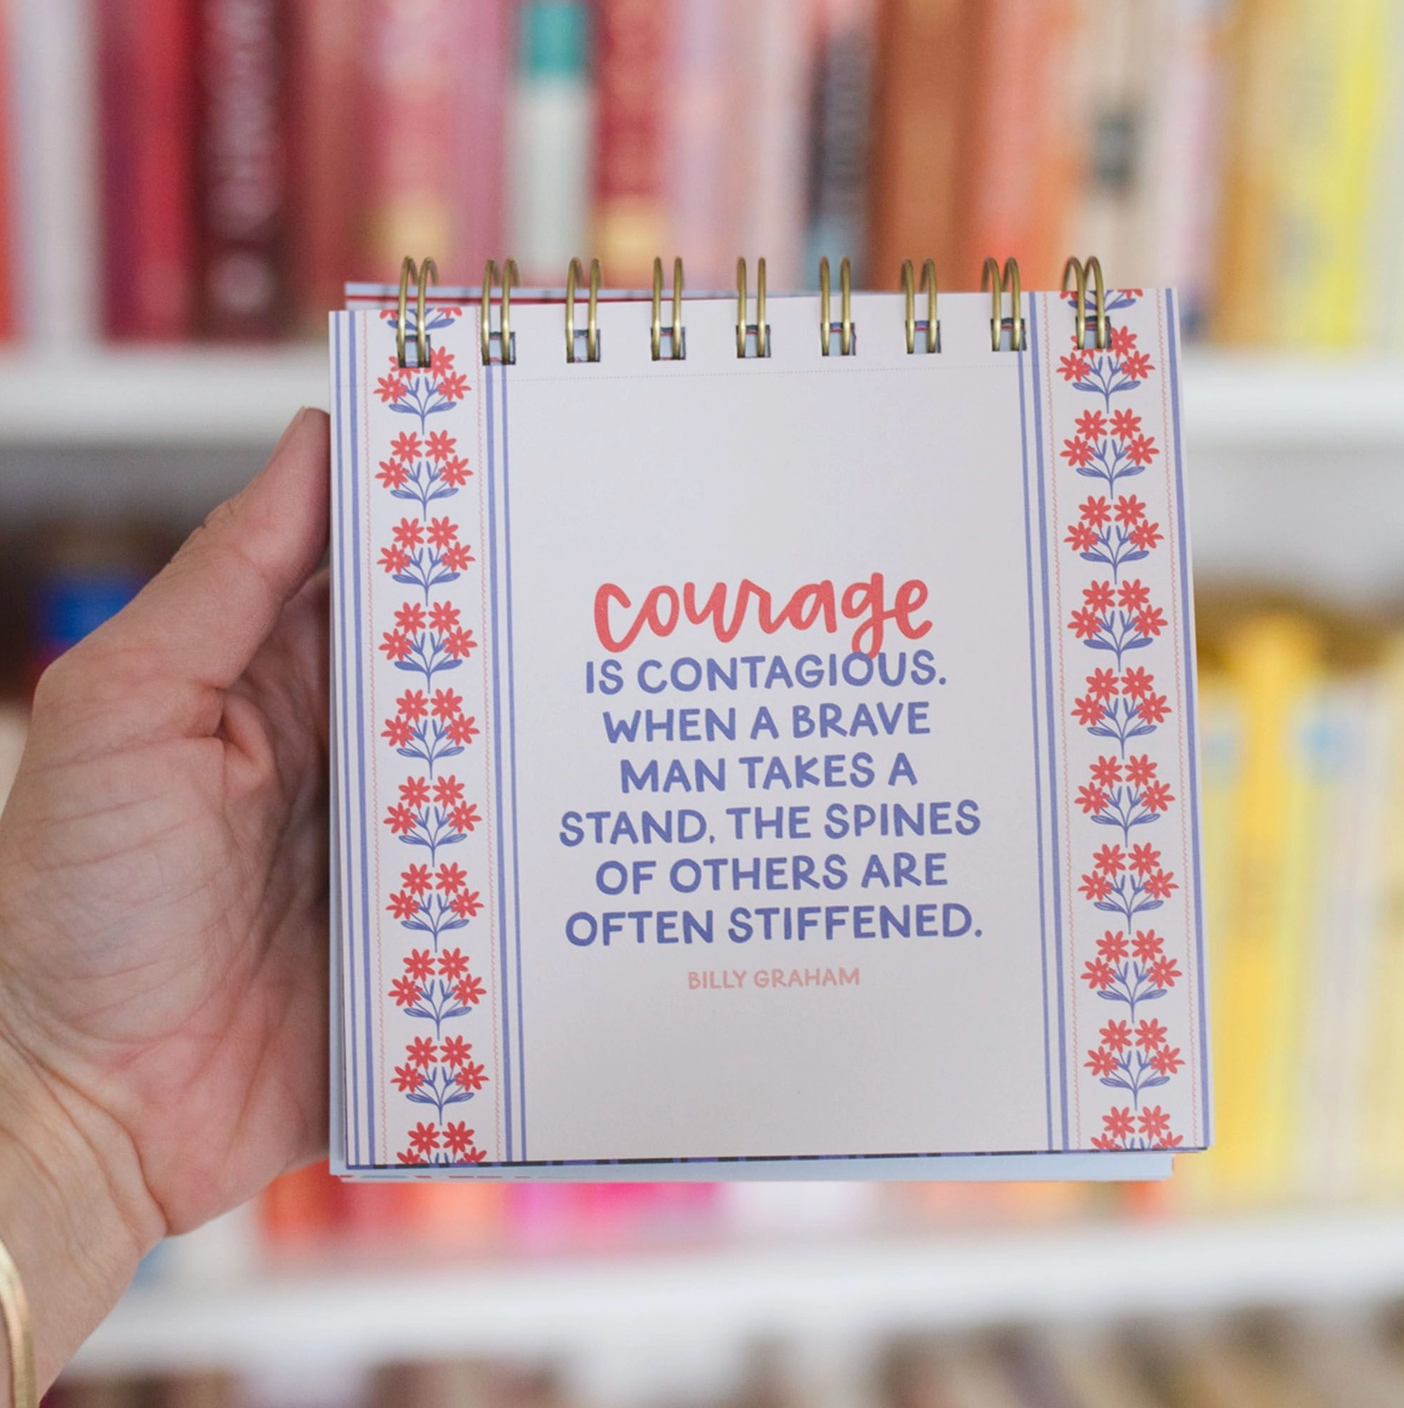 courage
IS CONTAGIOUS.
WHEN A BRAVE
MAN TAKES A
STAND, THE SPINES
OF OTHERS ARE
OFTEN STIFFENED.
BILLY GRAHAM